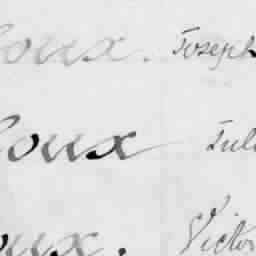 oux. Joseph
oux Jul
oux. Victor